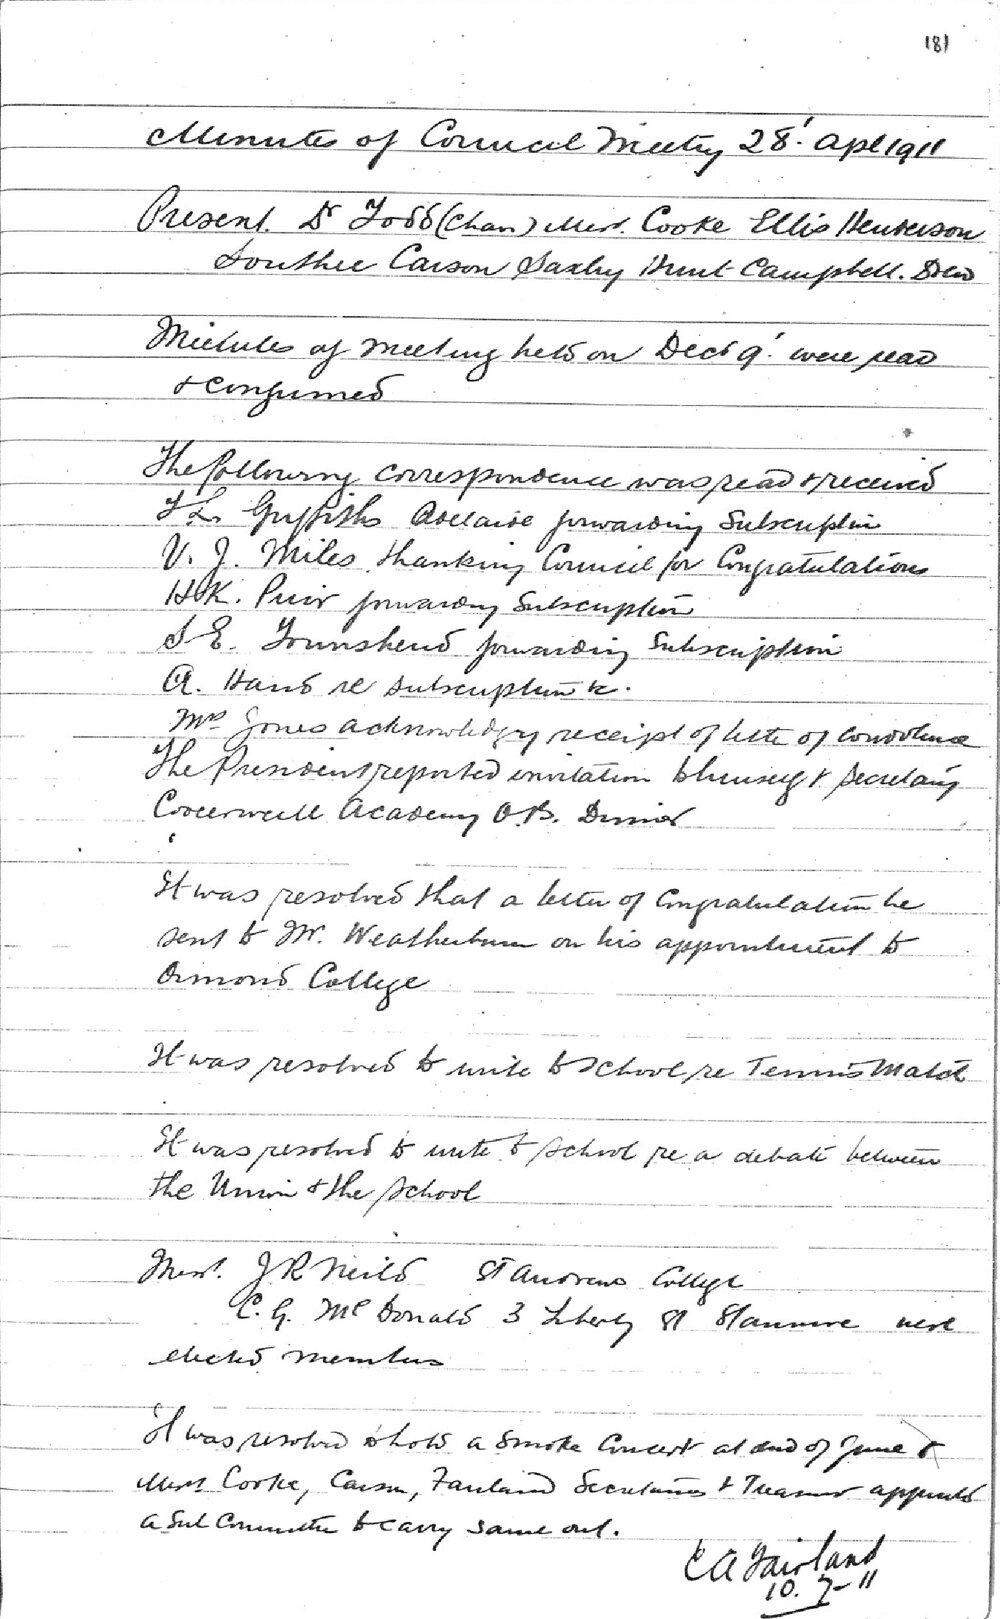 181
Minutes of Council Meeting 28' Apl 1911
Present. Dr Todd (Chan) Messrs. Cooke Ellis Henderson
Southee Carson Saxby Hunt Campbell. Drew
Minutes of meeting held on Dec 9' were read
& confirmed
The following correspondence was read & received
Griffiths Adelaide forwarding Subscription
V. J. Miles thanking Council for Congratulations
H.K. Prior forwarding Subscription
S E. Townshend forwarding Subscription
A. Hand re subscription &c.
Mrs Jones acknowledging receipt of letter of condolence
The President reported invitation to himself & Secretary
Cooerwull Academy O.B. Dinner
It was resolved that a letter of Congratulation be
sent to Mr. Weatherburn on his appointment to
Ormond College
It was resolved to write to School re Tennis Match
It was resolved to write to School re a debate between
the Union & the School
Messrs. J R Neild St Andrews College
C. G. McDonald 3 Liberty St Stanmore were
elected members
It was resolved to hold a Smoke Concert at end of June &
Messrs Cooke, Carson, Fairland Secretaries & Treasurer appointed
a Sub Committee to carry same out.
C A Fairland
10. 7-11